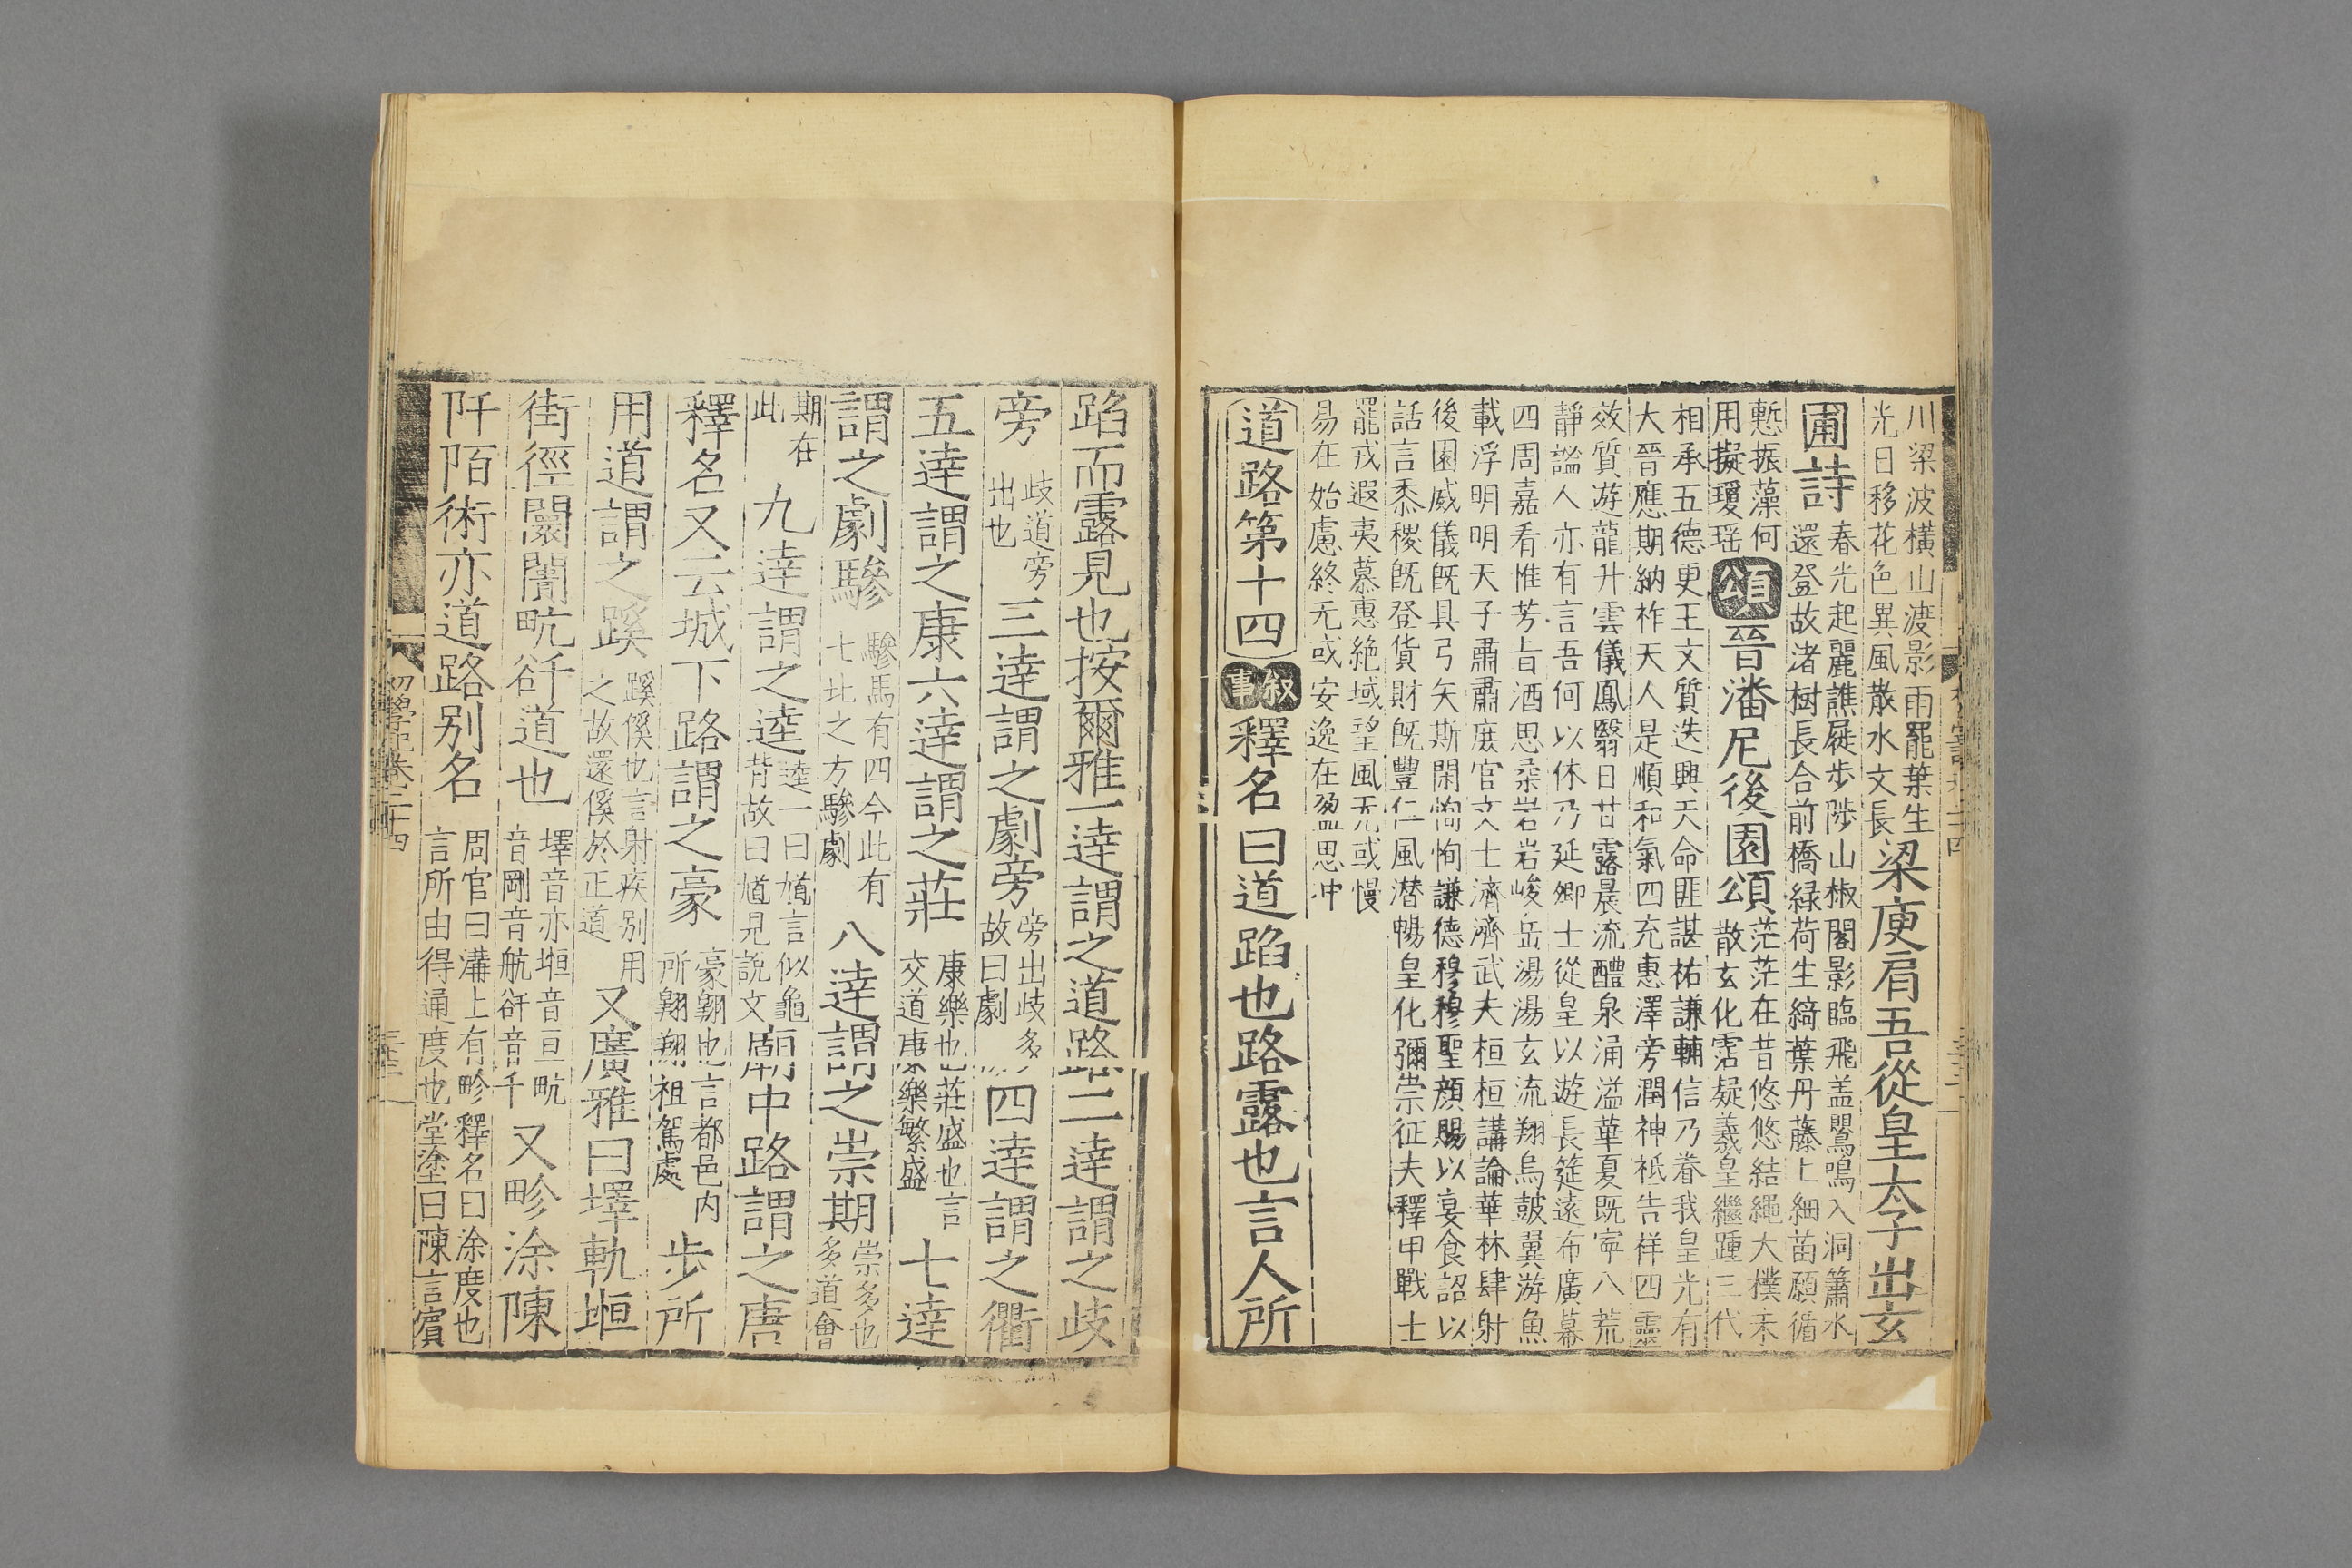 川梁波橫山渡影雨罷葉生
光日移花色異風散水文長梁庾肩吾從皇太子出玄
圃詩春光起麗譙屣步陟山椒閣影臨飛盖鸎鳴入洞簫水
還登故渚樹長合前橋緑荷生綺葉丹藤上細苗顧循
慙振藻何
用擬瓊瑶頌晉潘尼後園頌茫茫在昔悠悠結繩大樸未
散玄化霑疑羲皇繼踵三代
相承五德更王文質迭興天命匪諶祐謙輔信乃眷我皇光有
大晉應期納祚天人是順和氣四充惠澤旁潤神祇告祥四靈
效質遊龍升雲儀鳳翳日甘露晨流醴泉涌溢華夏既寧八荒
靜謐人亦有言吾何以休乃延卿士從皇以遊長筵遠布廣幕
四周嘉肴惟芳旨酒思柔岩岩峻岳湯湯玄流翔鳥皷翼游魚
載浮明明天子肅肅庶官文士濟濟武夫桓桓講論華林肆射
後園威儀既具弓矢斯閑恂恂謙德穆穆聖顔賜以宴食詔以
話言黍稷既登貨財既豐仁風潛暢皇化彌崇征夫釋甲戰士
罷戎遐夷慕惠絶域望風无或慢
易在始慮終无或安逸在盈思冲
道路第十四叙事釋名曰道蹈也路露也言人所
蹈而露見也按爾雅一達謂之道路二達謂之歧
旁歧道旁出也三達謂之劇旁旁出歧多故曰劇四達謂之衢
五達謂之康六達謂之莊康樂也莊盛也言交道康樂繁盛七達
謂之劇驂驂馬有四今此有七比之方驂劇八達謂之崇期崇多也多道會
期在此九達謂之逵逵一曰馗言似龜背故曰馗見說文廟中路謂之唐
釋名又云城下路謂之豪豪翱也言都邑内所翱翔祖駕處步所
用道謂之蹊蹊傒也言射疾别用之故還傒於正道又廣雅曰墿軌𡊨
街徑闤闠㽘谸道也墿音亦𡊨音亘㽘音剛音航谸音千又畛涂陳
阡陌術亦道路别名周官曰溝上有畛釋名曰涂度也言所由得通度也堂塗曰陳言賔
初學記卷二十四